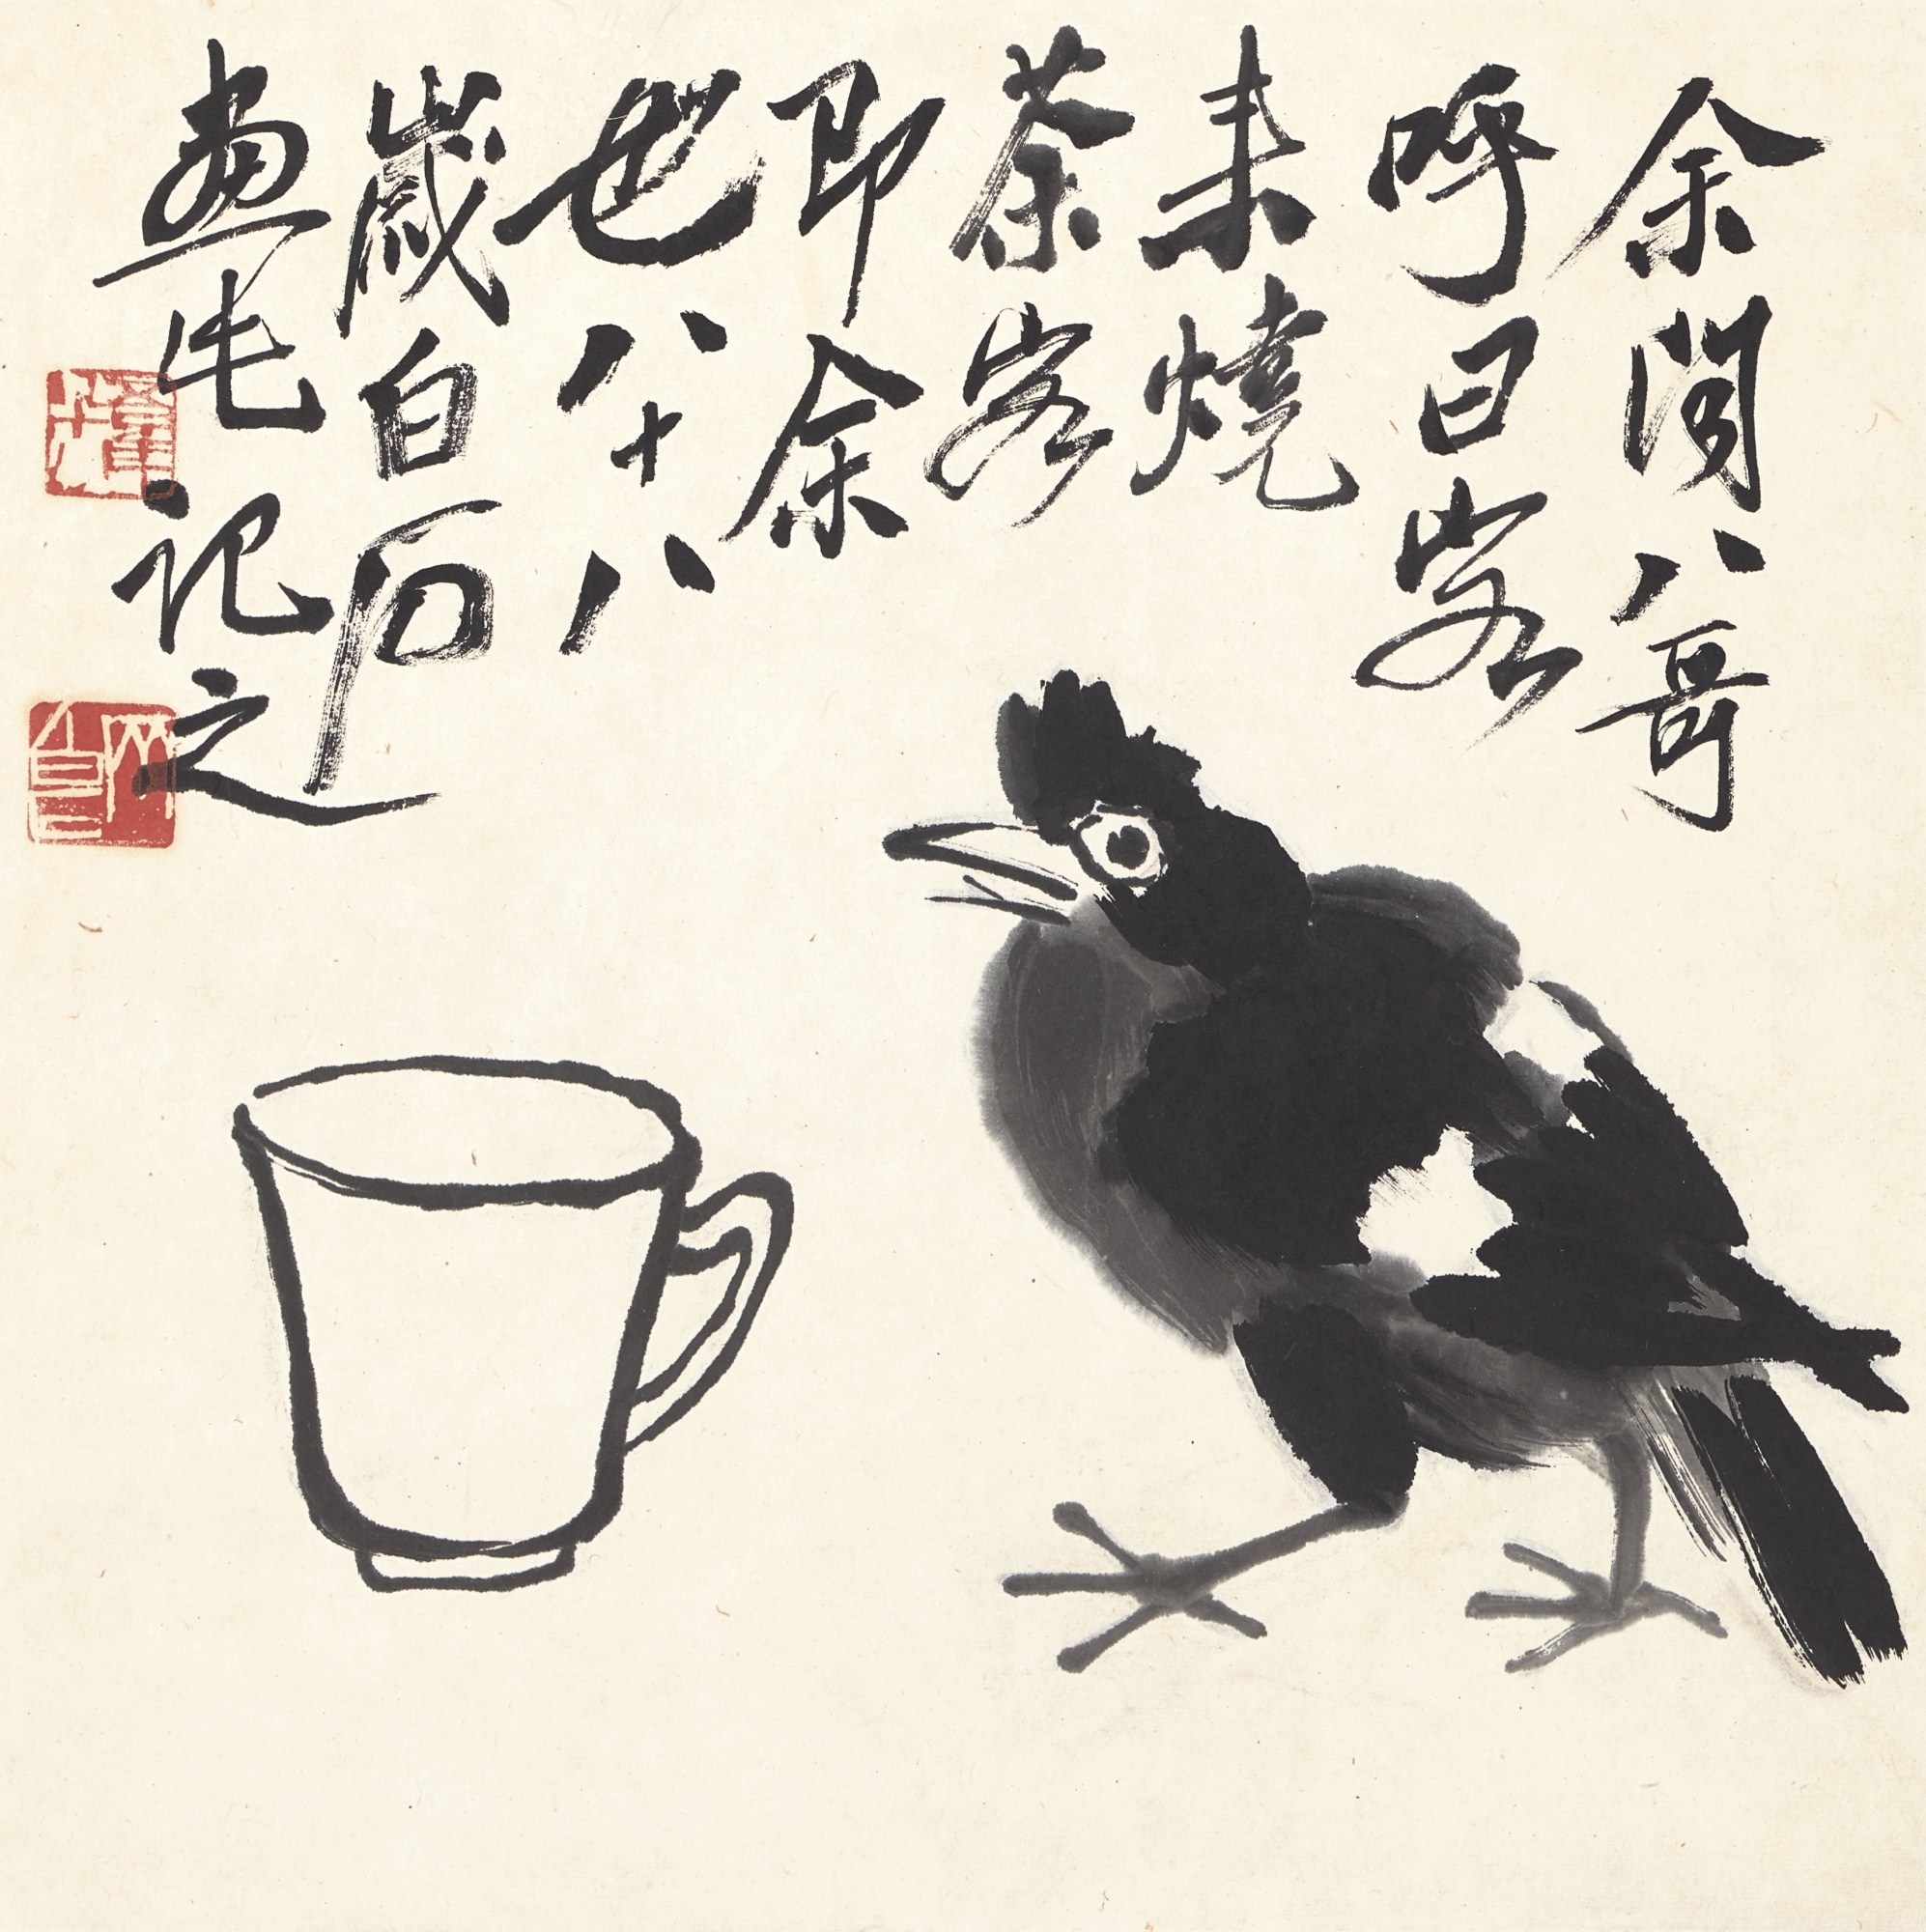 余聞八哥
呼曰客
来燒
茶客
即余
也八十八
歲白石
畫記之